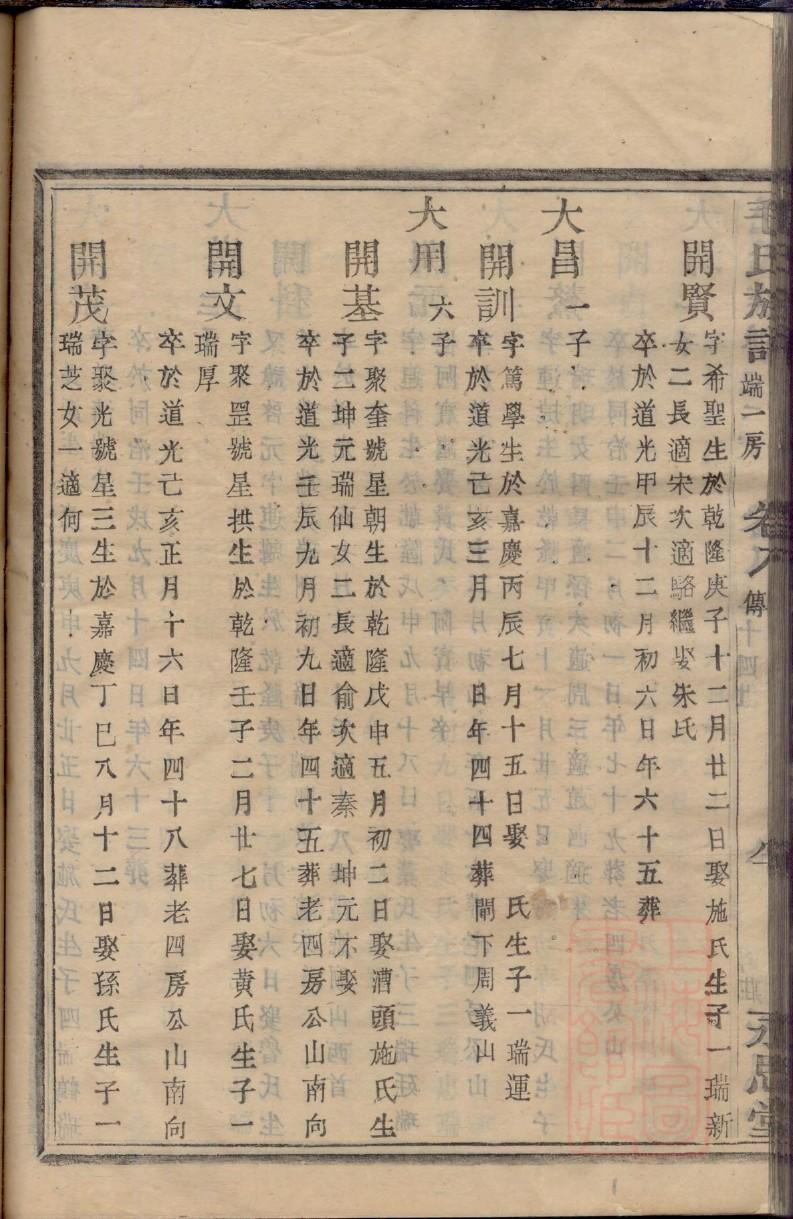 毛氏族譜 端一房 卷 傳 十四世 永思堂
開賢 字希聖生於乾隆庚子十二月廿二日娶施氏生子一瑞新
女二長適宋次適駱繼娶朱氏
卒於道光甲辰十二月初六日年六十五葬
大昌 一子
開訓 字篤學生於嘉慶丙辰七月十五日娶 氏生子一瑞運
卒於道光己亥三月 日年四十四葬閘下周義山
大用 六子
開基 字聚奎號星朝生於乾隆戊申五月初二日娶漕頭施氏生
子二坤元瑞仙女二長適俞次適秦 坤元不娶
卒於道光壬辰九月初九日年四十五葬老四房公山南向
開文 字聚罡號星拱生於乾隆壬子二月廿七日娶黃氏生子一
瑞厚
卒於道光己亥正月十六日年四十八葬老四房公山南向
開茂 字聚光號星三生於嘉慶丁巳八月十二日娶孫氏生子一
瑞芝女一適何